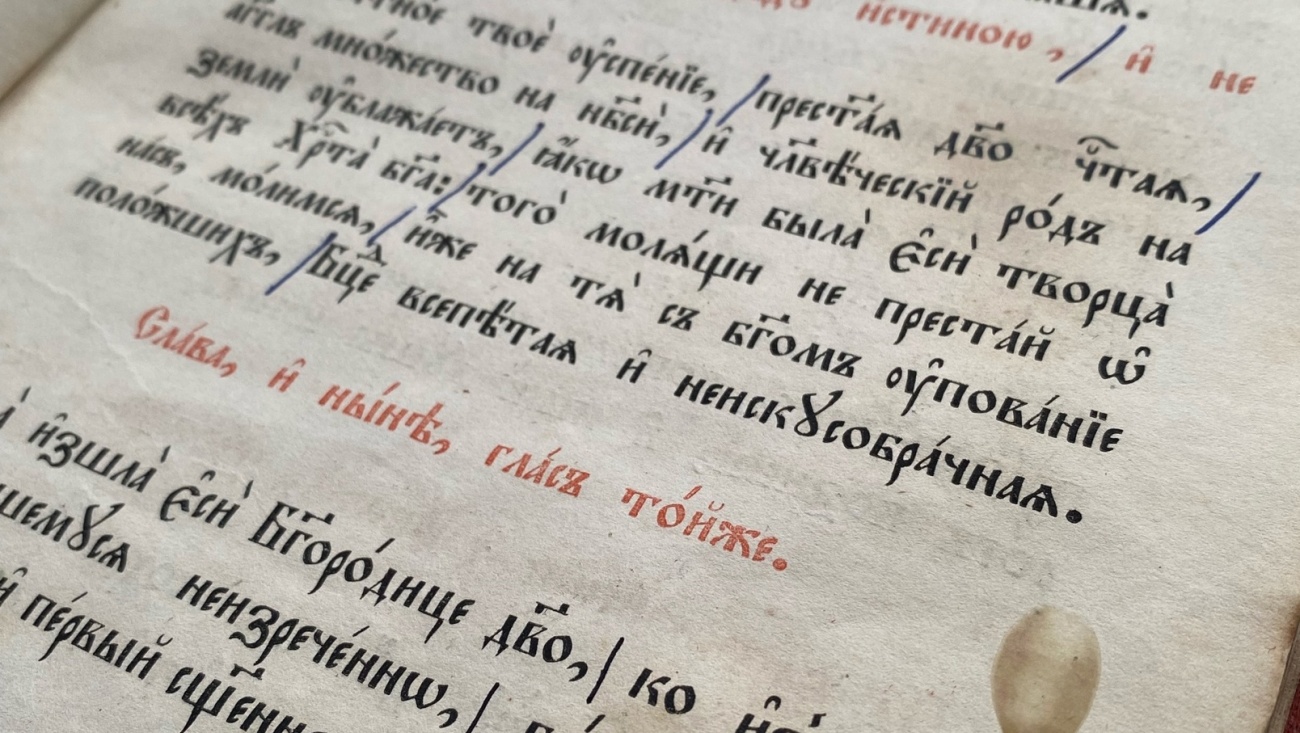 и҆́стиною, / и҆ не
твоѐ оу҆спе́нїе, / прест҃а́ѧ дв҃о чⷭ҇таѧ, /
а҆́гг҃лъ мно́жество на нб҃сѝ, / и҆ чл҃вѣ́ческїй ро́дъ на
землѝ оу҆блажа́етъ, / ꙗ҆́кѡ мт҃и была̀ є҆сѝ творца̀
всѣ́хъ Хрⷭ҇та̀ бг҃а: / того̀ молѧ́щи не преста́й ѡ҆
на́съ, мо́лимсѧ, / и҆̀же на тѧ̀ съ бг҃омъ оу҆пова́нїе
поло́жшихъ, / Бцⷣе всепѣ́таѧ и҆ неискꙋсобра́чнаѧ.
Сла́ва, и҆ ны́нѣ, гла́съ то́йже.
и҆зшла̀ є҆сѝ Бг҃оро́дице дв҃о, / ко
шемꙋсѧ неизрече́ннѡ, /
пе́рвый сщ҃енн